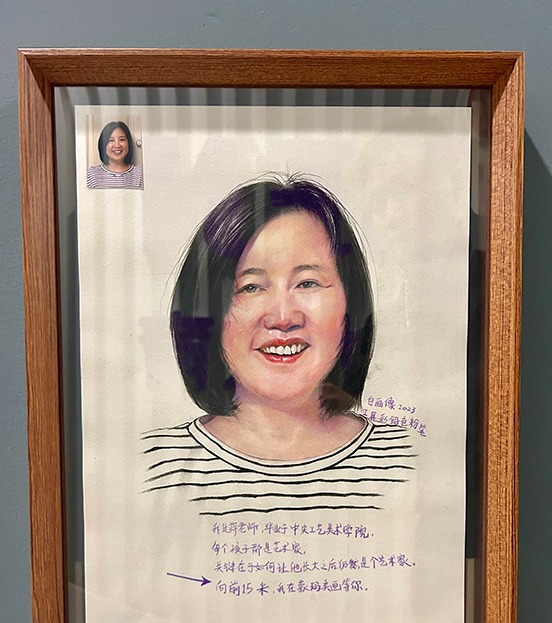 自画像 2023
彩铅色粉笔
我是薛老师,毕业于中央工艺美术学院,
每个孩子都是艺术家,
关键在于如何让他长大之后仍然是个艺术家。
向前15米,我在数码美画等你。